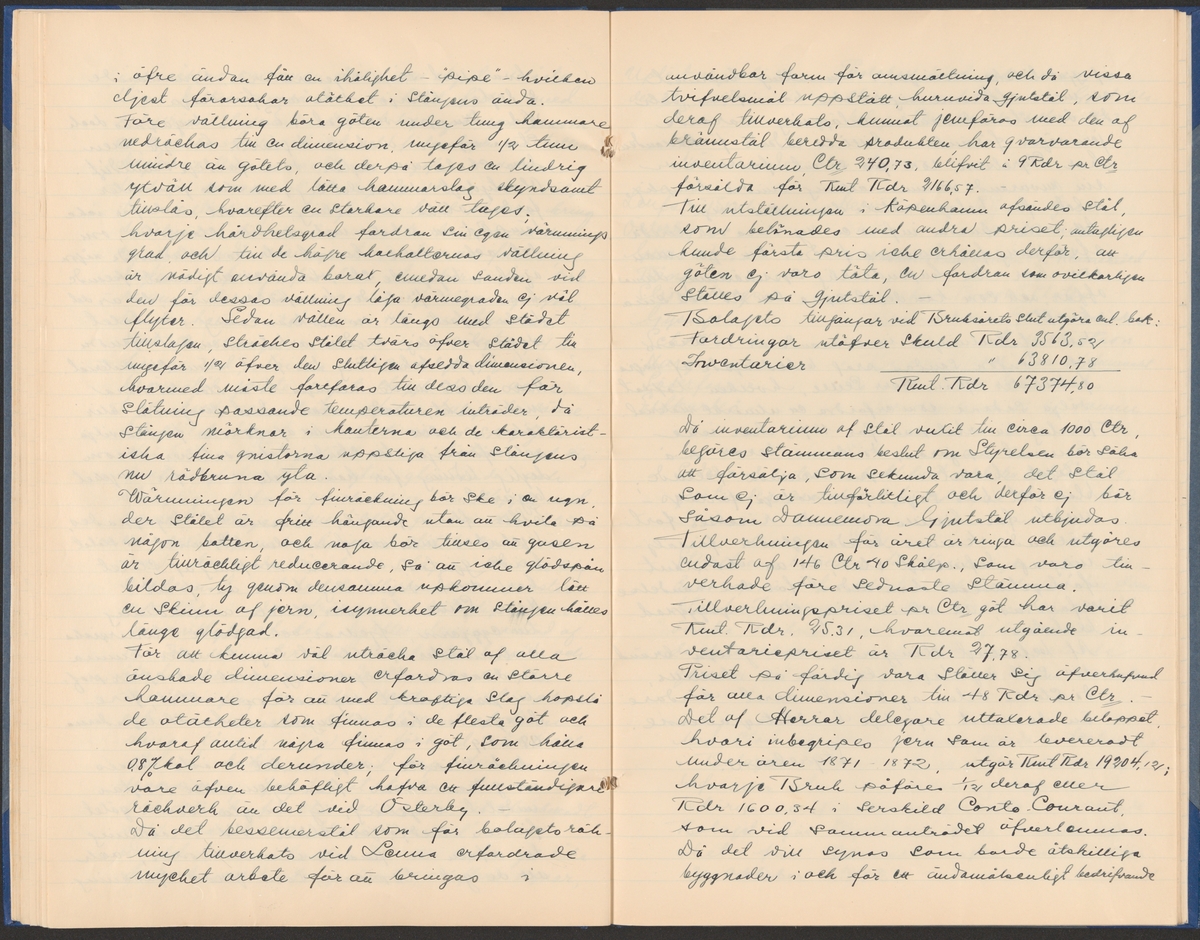 i öfre ändan fått en ihålighet – "pipe" – hvilken
eljest förorsakar otäthet i stångens ända.
Före vällning böra göten under tung hammare
nedräckas till en dimension, ungefär 1/2 tum
mindre än götets, och derpå tages en lindrig
ytväll som med lätta hammarslag skyndsamt
tillslås, hvarefter en starkare väll tages;
hvarje hårdhetsgrad fordrar sin egen värmnings
grad, och till de högre kolhalternas vällning
är nödigt använda borax, emedan sanden vid
den för dessas vällning låga värmegraden ej väl
flyter. Sedan vällen är längs med städet
tillslagen, sträckes stålet tvärs öfver städet till
ungefär 1/2 öfver den slutligen afsedda dimensionen,
hvarmed måste fortfaras till dess den för
slätning passande temperaturen inträder, då
stången mörknar i kanterna och de karaktärist-
iska fina gnistorna uppstiga från stångens
nu rödbruna yta.
Wärmningen för finräckning bör ske i en ugn,
der stålet är fritt hängande utan att hvila på
någon botten, och noga bör tillses att gasen
är tillräckligt reducerande, så att icke glödspån
bildas, ty genom densamma uppkommer lätt
en skinn af jern, isynnerhet om stången hålles
länge glödgad.
För att kunna väl uträcka stål af alla
önskade dimensioner erfordras en större
hammare för att med kraftiga slag hopslå
de otätheter som finnas i de flesta göt och
hvaraf alltid några finnas i göt, som hålla
0.8% kol och derunder; för finräckningen
vore äfven behöfligt hafva ett fullständigare
räckverk än det vid Österby. –
Då det bessemerstål som för bolagets räk-
ning tillverkats vid Lenna erfordrade
mycket arbete för att bringas i
användbar form för omsmältning, och då vissa
tvifvelsmål uppstått, huruvida gjutstål, som
deraf tillverkats, kunnat jemföras med den af
brännstål beredda produkten har qvarvarande
inventarium, Ctr 240,73, blifvit à 9 Rdr pr Ctr
försålda för Rmt Rdr 2166,57. –
Till utställningen i Köpenhamn afsändes stål,
som belönades med andra priset; antagligen
kunde första pris icke erhållas derför, att
göten ej voro täta, en fordran som ovilkorligen
ställes på gjutstål. –
Bolagets tillgångar vid Bruksårets slut utgöra enl. bok:
Fordringar utöfver skuld Rdr 3563,52
Inventarier " 63810,78
Rmt. Rdr 67374,80
Då inventarium af stål vuxit till circa 1000 Ctr,
begäres stämmans beslut om Styrelsen bör söka
att försälja, som sekunda vara, det stål
som ej är tillförlitligt och derför ej bör
såsom Dannemora Gjutstål utbjudas
Tillverkningen för året är ringa och utgöres
endast af 146 Ctr 40 Skålp., som voro till-
verkade före sednaste Stämma.
Tillverkningspriset pr Ctr göt har varit
Rmt. Rdr. 25.31, hvaremot utgående in-
ventariepriset är Rdr 27,78.
Priset på färdig vara ställer sig öfverhufvud
för alla dimensioner till 48 Rdr pr Ctr. –
Det af Herrar delegare uttaxerade beloppet,
hvari inbegripes jern som är levereradt
under åren 1871 - 1872, utgör Rmt Rdr 19204,12;
hvarje Bruk påföres 1/12 deraf eller
Rdr 1600,34 i särskild Conto-Courant,
som vid sammanträdet öfverlemnas.
Då det vill synas som borde åtskilliga
byggnader i och för ett ändamålsenligt bedrifvande